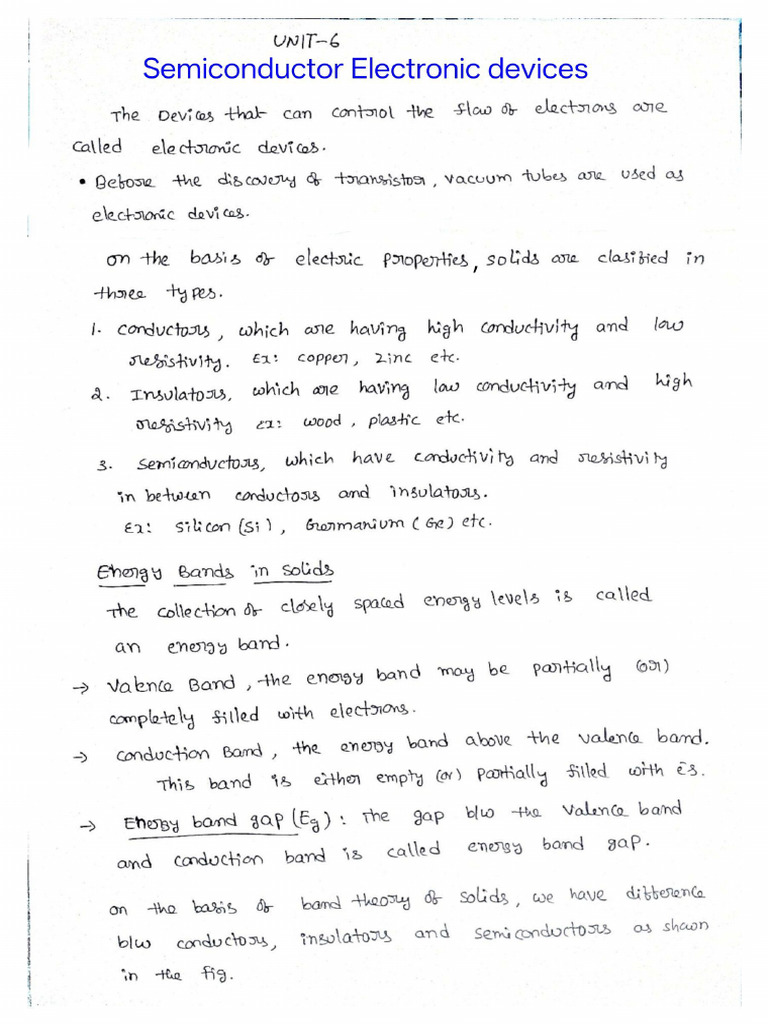 UNIT-6
Semiconductor Electronic devices
The Devices that can control the flow of electrons are
called electronic devices.
• Before the discovery of transistor, vacuum tubes are used as
electronic devices.
on the basis of electric properties, solids are clasified in
three types.
1. conductors, which are having high conductivity and low
resistivity. Ex: copper, zinc etc.
2. Insulators, which are having low conductivity and high
resistivity Ex: wood, plastic etc.
3. semiconductors, which have conductivity and resistivity
in between conductors and insulators.
Ex: Silicon (Si), Germanium (Ge) etc.
Energy Bands in solids
The collection of closely spaced energy levels is called
an energy band.
→ Valence Band, the energy band may be partially (or)
completely filled with electrons.
→ conduction Band, the energy band above the valence band.
This band is either empty (or) partially filled with ēs.
→ Energy band gap (Eg): The gap b/w the Valence band
and conduction band is called energy band gap.
on the basis of band theory of solids, we have difference
b/w conductors, insulators and semiconductors as shawn
in the fig.